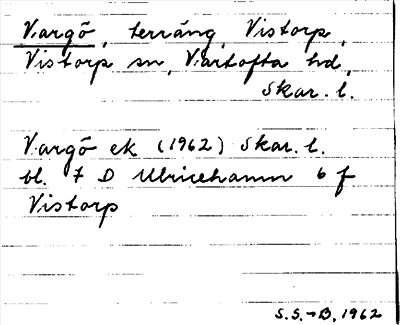 Vargö, terräng, Vistorp,
Vistorp sn, Vartofta hd,
Skar. l.
Vargö ek (1962) Skar. l.
bl. 7 D Ulricehamn 6 f
Vistorp
S.S.-B, 1962